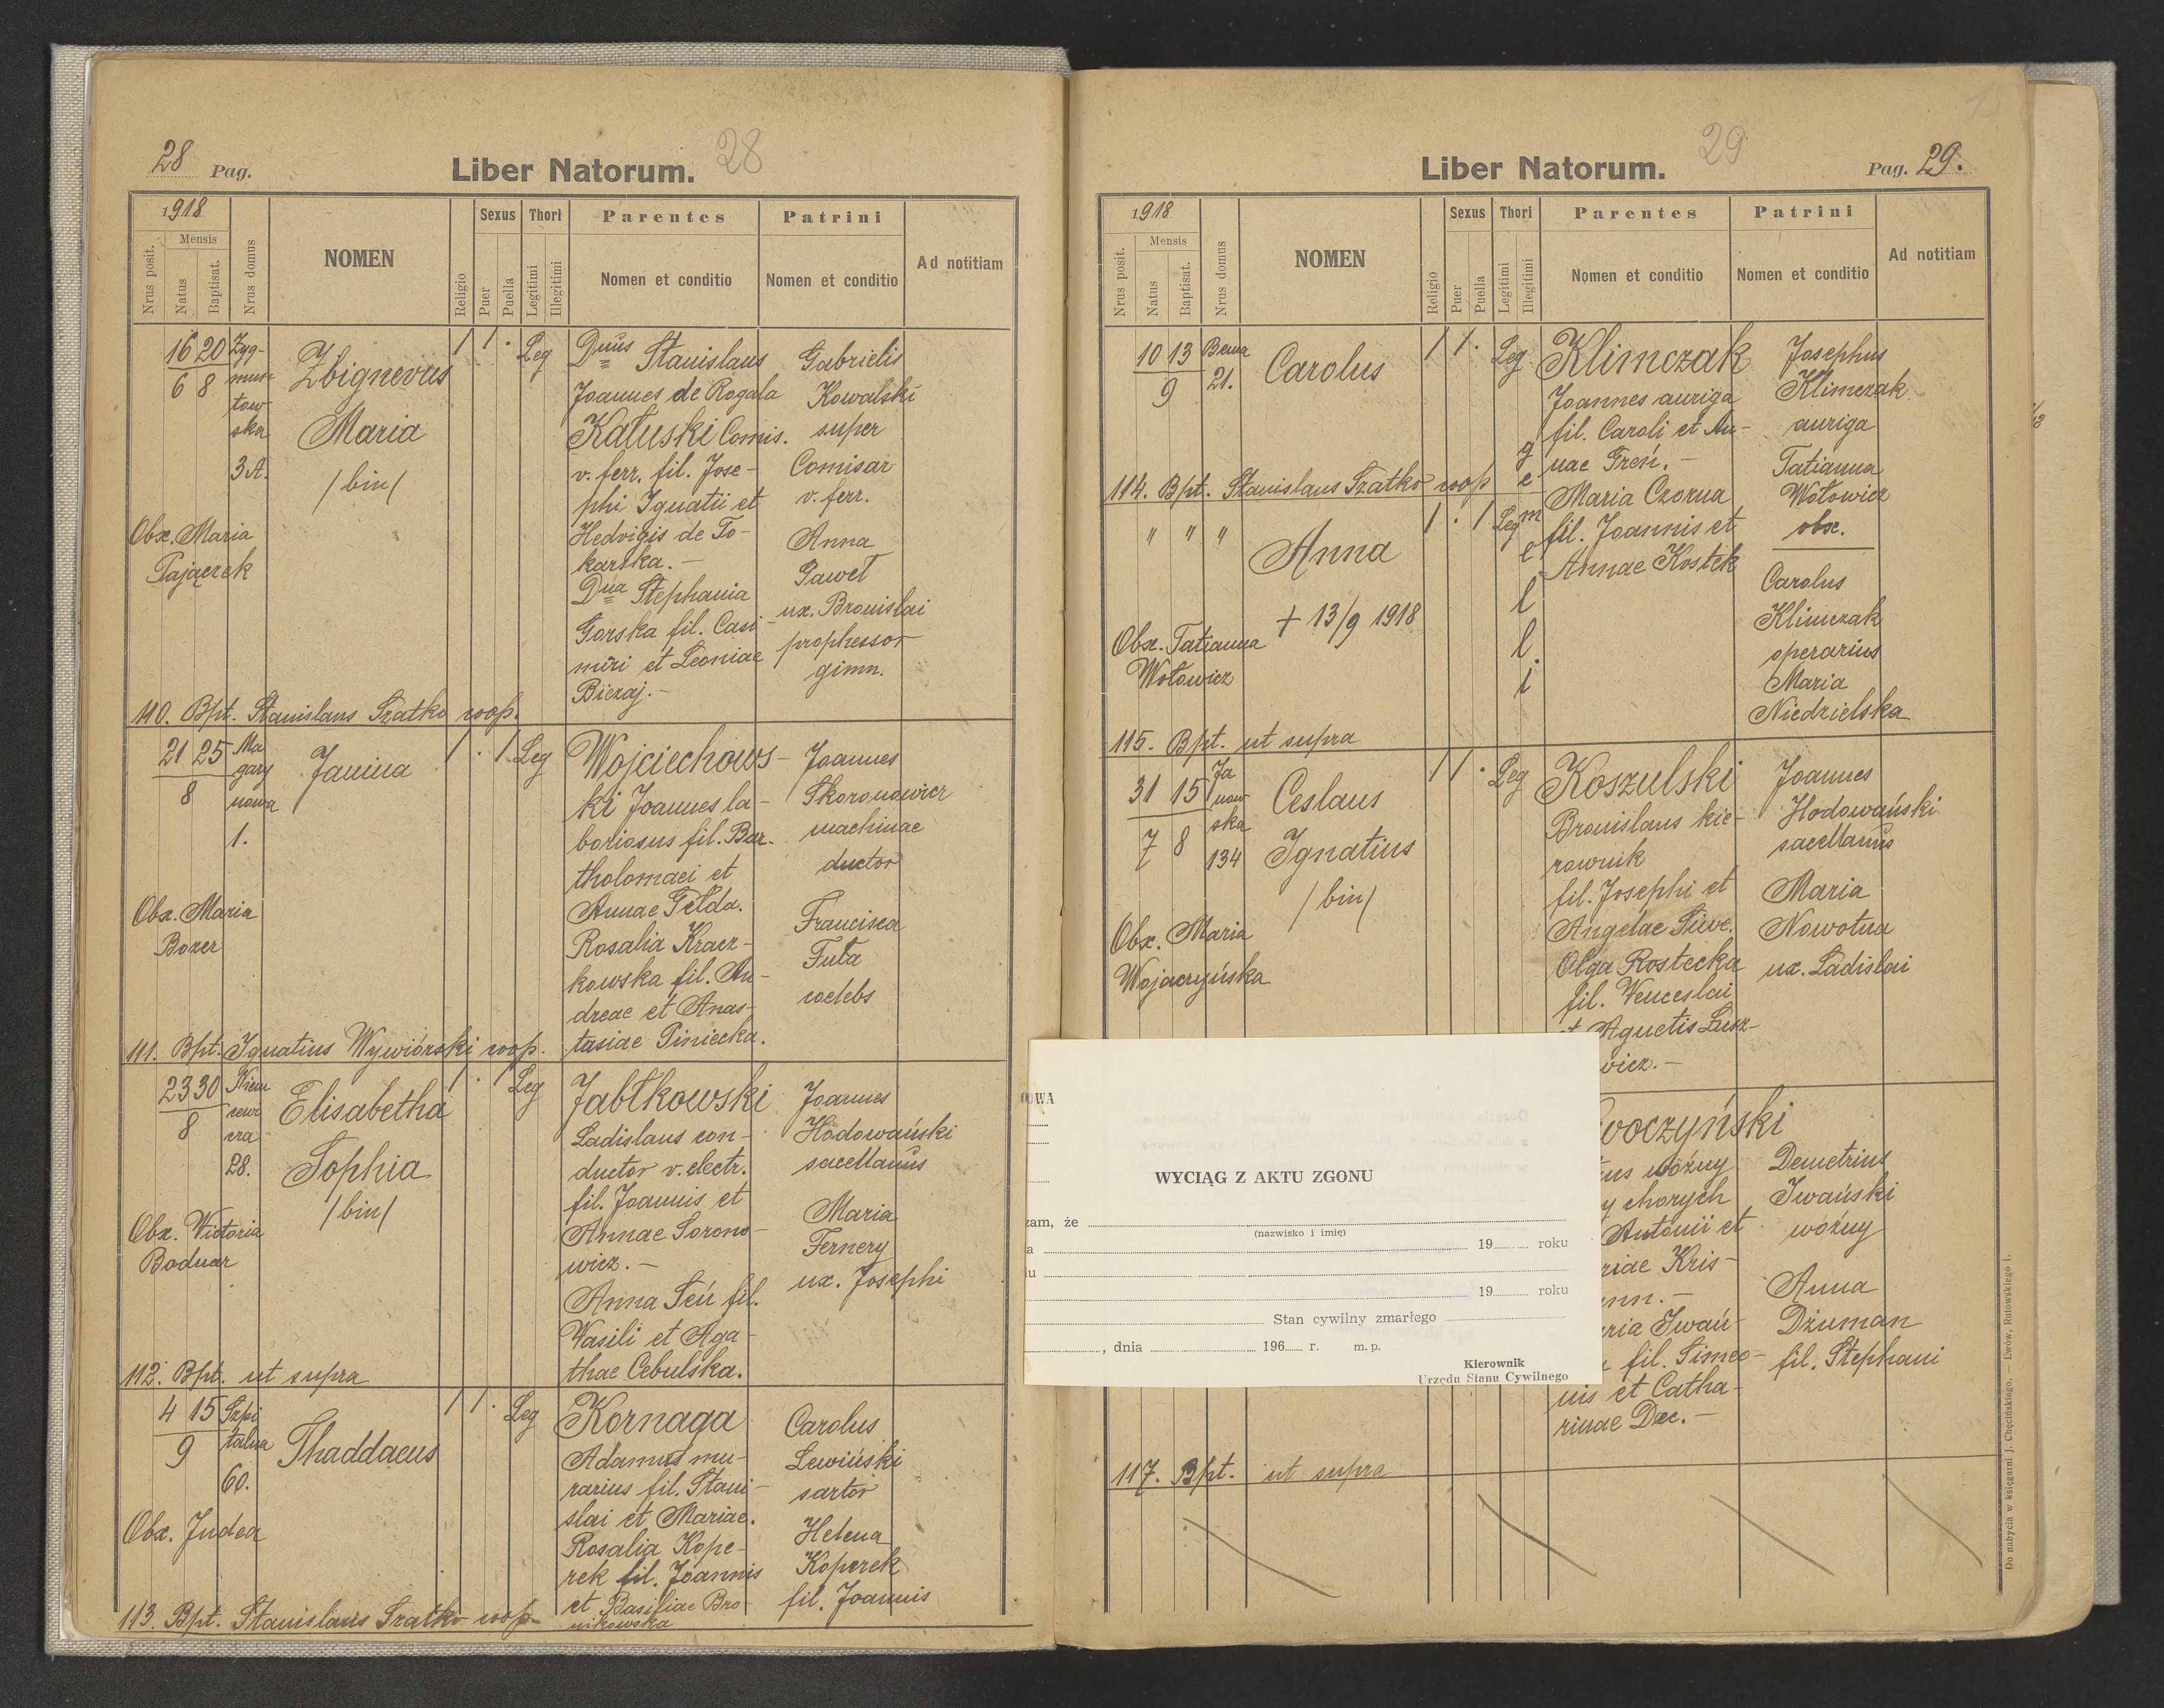 28 Pag.
Liber Natorum. 28
1918
Nrus posit.
Mensis
Natus
Baptisat.
Nrus domus
NOMEN
Religio
Sexus
Puer
Puella
Thori
Legitimi
Illegitimi
Parentes
Nomen et conditio
Patrini
Nomen et conditio
Ad notitiam
16 20
6 8
Zyg-
mun-
tow-
ska
3A.
Zbignevus
Maria
/bin/
1 1 . Leg
Obx. Maria
Pajączek
Dnus Stanislaus
Joannes de Rogala
Kałuski Comis.
v. ferr. fil. Jose-
phi Ignatii et
Hedvigis de To-
karska. —
Dna Stephania
Gorska fil. Casi-
miri et Leoniae
Biezaj. —
Gabrielis
Kowalski
super
Comisar
v. ferr.
Anna
Paweł
ux. Bronislai
prophessor
gimn.
110. Bpt. Stanislaus Szatko coop.
21 25
8
Ma
gazy
nowa
1.
Janina
1 . 1 Leg
Obx. Maria
Bozer
Wojciechows-
ki Joannes la-
boriosus fil. Bar-
tholomaei et
Annae Gełda.
Rosalia Kracz-
kowska fil. An-
dreae et Anas-
tasiae Piniecka.
Joannes
Skoronowicz
machinae
ductor
Francisca
Futa
coelebs
111. Bpt. Ignatius Wywiórski coop.
23 30
8
Niem
cewi
cza
28.
Elisabetha
Sophia
/bin/
1 . 1 Leg
Obx. Victoria
Bodnar
Jabłkowski
Ladislaus con-
ductor v. electr.
fil. Joannis et
Annae Sorono-
wicz. —
Anna Seń fil.
Wasili et Aga-
thae Cebulska.
Joannes
Hodowański
sacellanus
Maria
Fernery
ux. Josephi
112. Bpt. ut supra
4 15
9
Szpi
talna
60.
Thaddaeus
1 1 . Leg
Obx. Judea
Kornaga
Adamus mu-
rarius fil. Stani-
slai et Mariae.
Rosalia Kope-
rek fil. Joannis
et Basiliae Bro-
nikowska
Carolus
Lewiński
sartor
Helena
Koperek
fil. Joannis
113. Bpt. Stanislaus Szatko coop.
Liber Natorum. 29
Pag. 29.
1918
Nrus posit.
Mensis
Natus
Baptisat.
Nrus domus
NOMEN
Religio
Sexus
Puer
Puella
Thori
Legitimi
Illegitimi
Parentes
Nomen et conditio
Patrini
Nomen et conditio
Ad notitiam
10 13
9
Bema
21.
Carolus
1 1 . Leg
Klimczak
Joannes auriga
fil. Caroli et An-
nae Greń. —
Maria Czorna
fil. Joannis et
Annae Kostek
Josephus
Klimczak
auriga
Tatianna
Wołowicz
obx.
114. Bpt. Stanislaus Szatko coop
" " "
Anna
+ 13/9 1918
1 . 1 Leg
g
e
m
e
l
l
i
Obx. Tatianna
Wołowicz
Carolus
Klimczak
operarius
Maria
Niedzielska
115. Bpt. ut supra
31 15
7 8
Ja
now
ska
134
Ceslaus
Ignatius
/bin/
1 1 . Leg
Obx. Maria
Wojaczyńska
Koszulski
Bronislaus kie-
rownik
fil. Josephi et
Angelae Siwe.
Olga Rostecka
fil. Venceslai
et Agnetis Łusz-
wicz. —
Joannes
Hodowański
sacellanus
Maria
Nowotna
ux. Ladislai
OWA
WYCIĄG Z AKTU ZGONU
zam, że
(nazwisko i imię)
a 19 roku
iu
19 roku
Stan cywilny zmarłego
, dnia 196 r. m. p.
Kierownik
Urzędu Stanu Cywilnego
woczyński
tus woźny
y chorych
Antonii et
riae Kris-
nn. —
ria Iwań-
fil. Simeo-
nis et Catha-
rinae Dec. —
Demetrius
Iwański
woźny
Anna
Dżuman
fil. Stephani
117. Bpt. ut supra
Do nabycia w księgarni J. Chęcińskiego. Lwów, Rutowskiego 1.